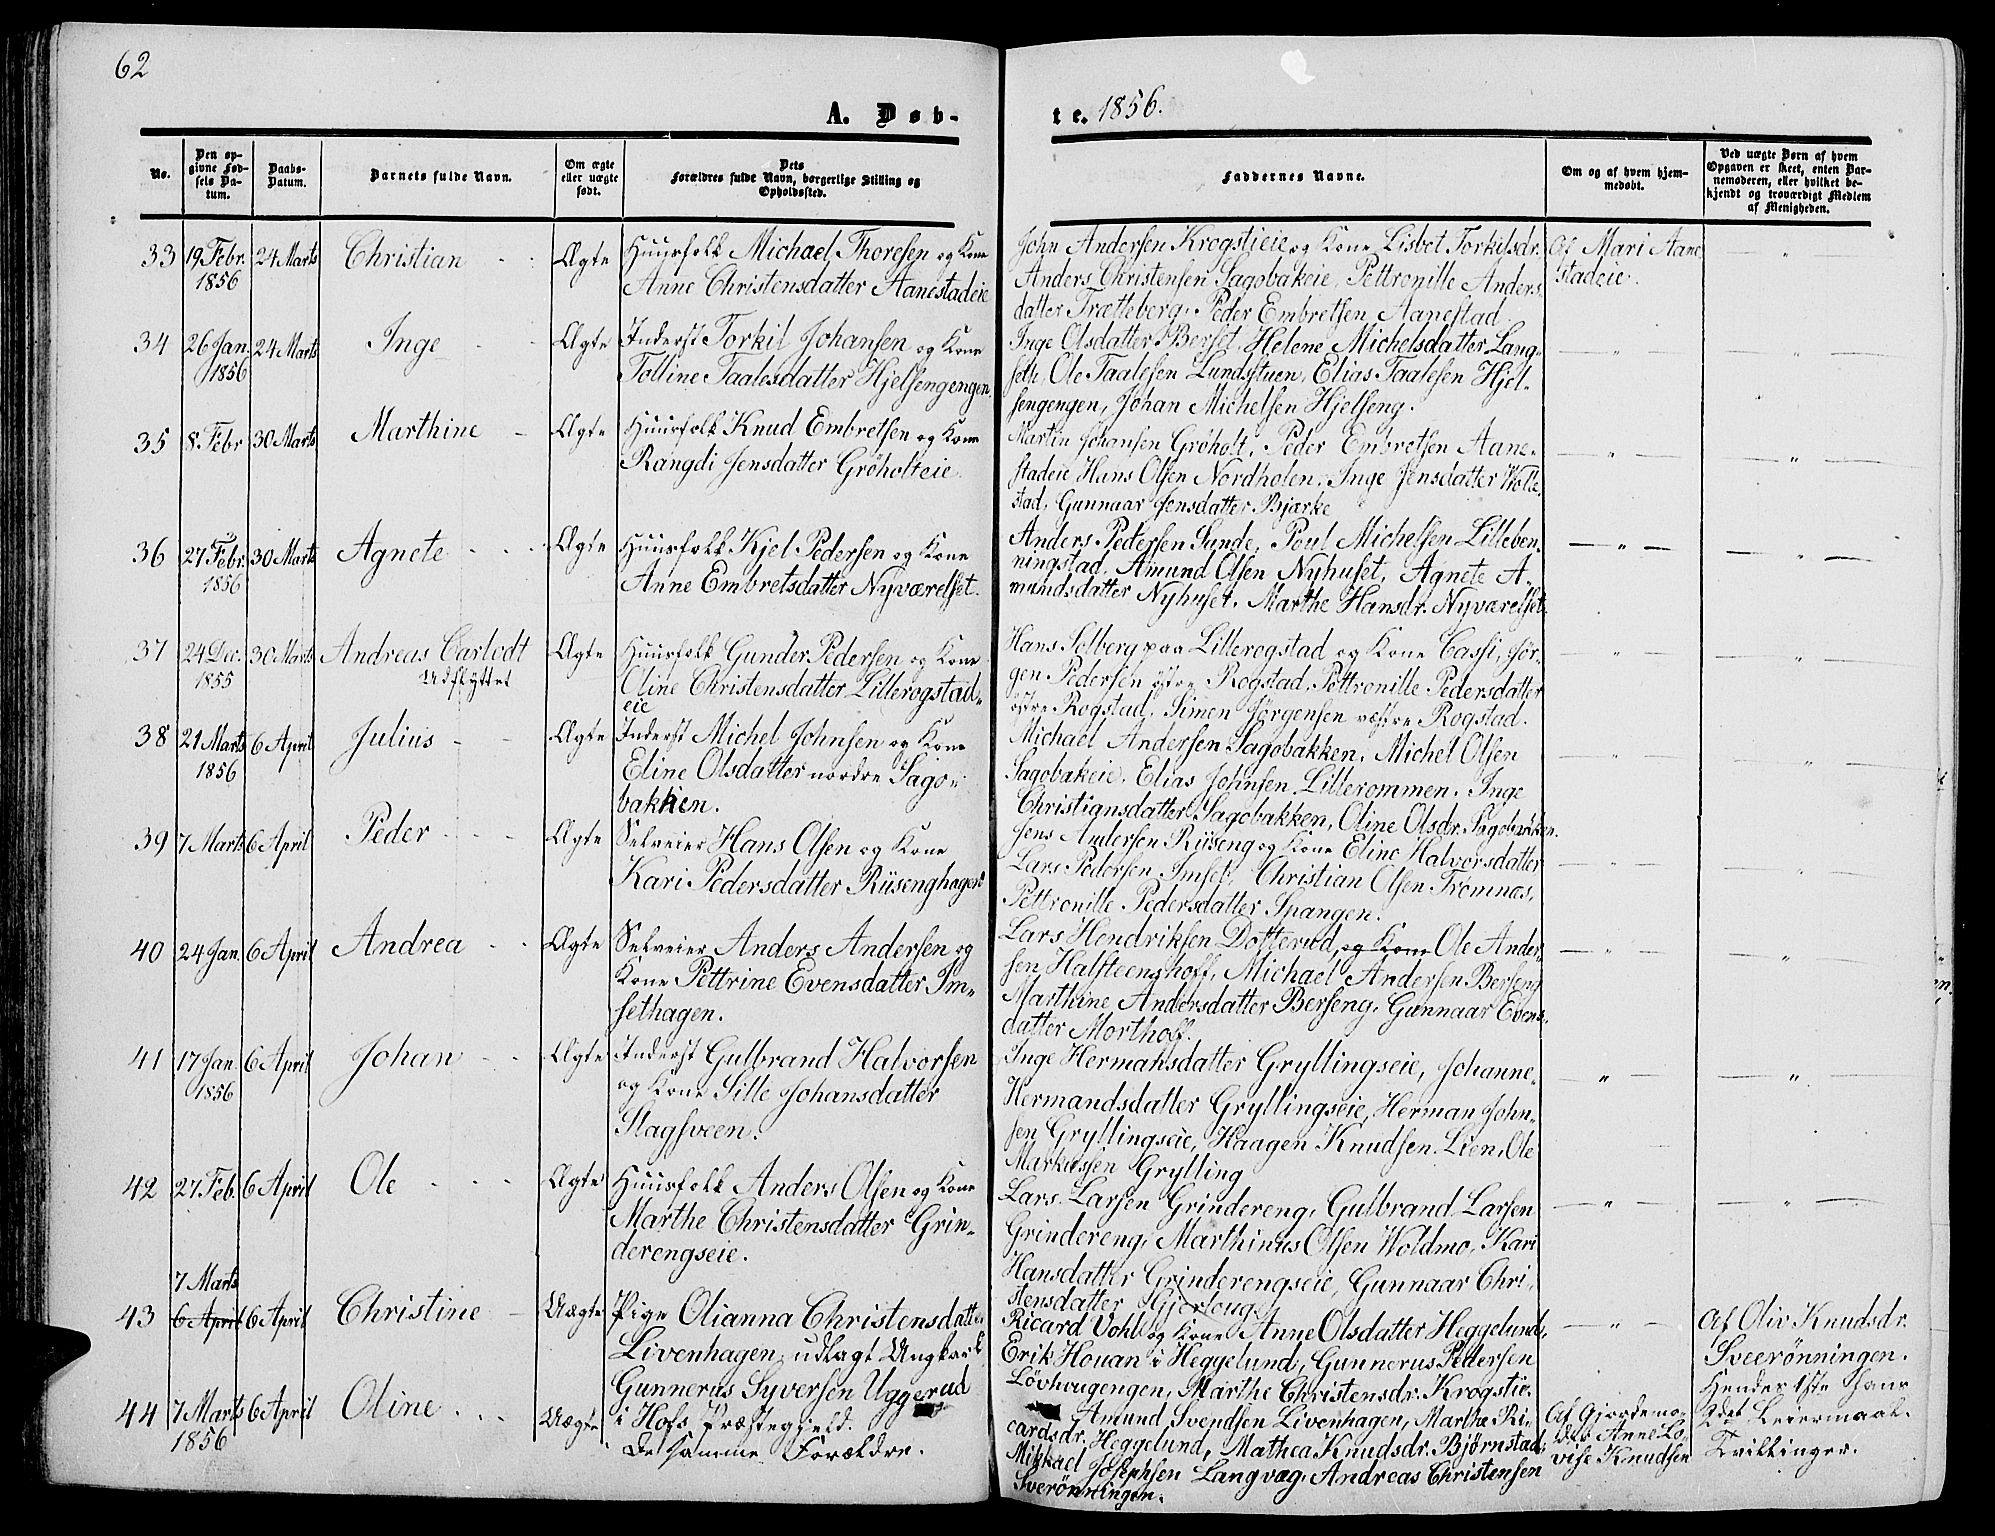 62
A. Døb-
te. 1856.
No.
Den op-
givne Fød-
sels Da-
tum.
Daabs-
Datum.
Barnets fulde Navn.
Om ægte
eller uægte
født.
Dets
Forældres fulde Navn, borgerlige Stilling og
Opholdssted.
Faddernes Navne.
Om og af hvem hjem-
medøbt.
Ved uægte Børn af hvem
Opgaven er skeet, enten Bar-
nemoderen, eller hvilket be-
kjendt og troværdigt Medlem
af Menigheden.
33 19 Febr. 24 Marts Christian - - Ægte Huusfolk Michael Thoresen og Kone
1856 Anne Christensdatter Aanestadeie
John Andersen Krogstieie og Kone Lisbet Torkilsdr.
Anders Christensen Sagobakeie, Pettronille Anders-
datter Trætteberg. Peder Embretsen Aanestad.
Af Mari Aane
stadeie.
34 26 Jan. 24 Marts Inge - - Ægte Inderst Torkil Johansen og Kone
1856 Tolline Taalesdatter Hjelsengengen
Inge Olsdatter Berset, Helene Michelsdatter Lang-
seth, Ole Taalesen Lundsstuen, Elias Taalesen Hjel-
sengengen, Johan Michelsen Hjelseng.
35 8. Febr 30 Marts Marthine - Ægte Huusfolk Knud Embretsen og Kone
Rangdi Jensdatter Gröholteie.
Martin Johansen Gröholt. Peder Embretsen Aane-
stadeie Hans Olsen Nordholen. Inge Jensdatter Wolle-
stad, Gunnaar Jensdatter Bjærke
36 27 Febr. 30 Marts Agnete - - - Ægte Huusfolk Kjel Pedersen og Kone
1856 Anne Embretsdatter Nyværelset.
Anders Pedersen Sunde, Poul Michelsen Lilleben-
ningstad, Amund Olsen Nyhuset, Agnete A-
mundsdatter Nyhuset. Marthe Hansdr. Nyværelset.
37 24 Dec. 30 Marts Andreas Carlodt Ægte Huusfolk Gunder Pedersen og Kone
1855 Udflyttet Oline Christensdatter Lillerogstad-
eie
Hans Solberg paa Lillerogstad og Kone Cassi, Jör-
gen Pedersen östre Rogstad, Pettronille Pedersdatter
östre Rogstad. Simen Jörgensen væstre Rogstad.
38 21 Marts 6 April Julius - - Ægte Inderst Michel Johnsen og Kone
1856 Eline Olsdatter nordre Sago-
bakken.
Michael Andersen Sagobakken, Michel Olsen
Sagobakeie. Elias Johnsen Lillerommen. Inge
Christiansdatter Sagobakken, Oline Olsdr. Sagobakken.
39 7 Marts 6 April Peder - - - Ægte Selveier Hans Olsen og Kone
Kari Pedersdatter Riisenghagen
Jens Andersen Riiseng og Kone Eline Halvorsdatter
Lars Pedersen Imset, Christian Olsen Trömnæs,
Pettronille Pedersdatter Spangen.
40 24 Jan. 6 April Andrea - - Ægte Selveier Anders Andersen og
Kone Pettrine Evensdatter Im-
sethagen.
Lars Hendriksen Dotterud, og Kone Ole Ander-
sen Halsteenshoff, Michael Andersen Berseng
Marthine Andersdatter Berseng, Gunnaar Evens-
datter Morthoff.
41 17 Jan. 6 April Johan - - Ægte Inderst Gulbrand Halvorsen
1856 og Kone Sille Johansdatter
Slagsveen.
Inge Hermansdatter Gryllingseie, Johanne-
Hermandsdatter Gryllingseie, Herman John-
sen Gryllingseie, Haagen Knudsen Lien, Ole
Markussen Grylling
42 27 Feb. 6 April Ole - - - Ægte Huusfolk Anders Olsen og Kone
Marthe Christensdatter Grin-
derengseie.
Lars Larsen Grindereng, Gulbrand Larsen
Grindereng, Marthinus Olsen Woldmo, Kari
Hansdatter Grinderengseie, Gunnaar Chri-
stensdatter Gjerlouget
7 Marts
43 6 April 6 April Christine - Uægte Pige Olianna Christensdatter
Livenhagen, udlagt Ungkarl
Gunnerus Syversen Uggerud
i Hofs Præstegjeld.
Ricard Vohl og Kone Anne Olsdatter Heggelund,
Erik Houan i Heggelund, Gunnerus Pedersen
Lövhougengen, Marthe Christensdr. Krogstie.
Af Oliv Knudsdr.
Sveerönningen.
Hendes 1ste hans
2det Leiermaal.
Tvillinger.
44 7 Marts 6 April Oline - - - Uægte
1856 De samme Forældre.
Amund Svendsen Livenhagen, Marthe Ri-
cardsdr. Heggelund, Mathea Knudsdr. Bjørnstad,
Mikkael Josephsen Langvæg, Andreas Christensen
Sverönningen.
Af Gjordemo-
der Anne Lo-
vise Knudsen